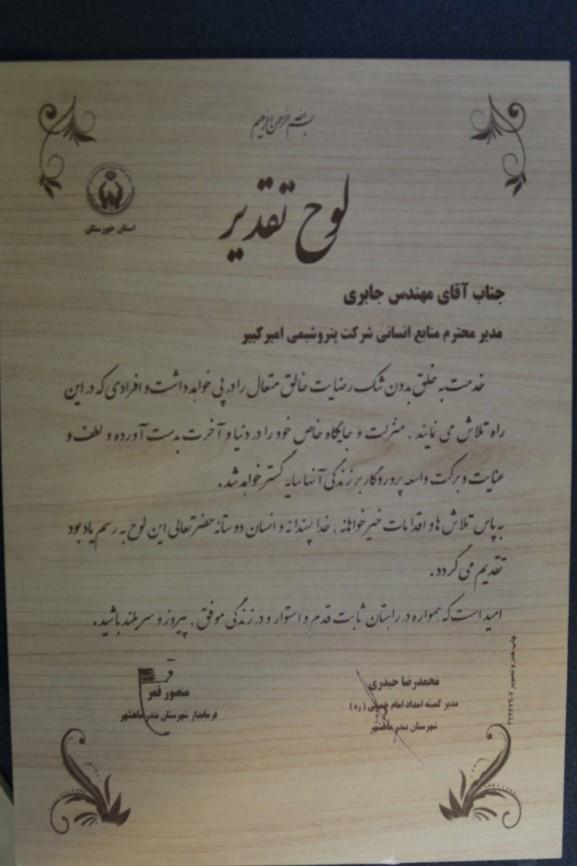 بسم الله الرحمن الرحیم
استان خوزستان
لوح تقدیر
جناب آقای مهندس جابری
مدیر محترم منابع انسانی شرکت پتروشیمی امیرکبیر
خدمت به خلق بدون شک رضایت خالق متعال را در پی خواهد داشت و افرادی که در این
راه تلاش می نمایند ، منزلت و جایگاه خاص خود را در دنیا و آخرت بدست آورده و لطف و
عنایت و برکت واسعه پروردگار بر زندگی آنها سایه گستر خواهد شد .
به پاس تلاش ها و اقدامات خیرخواهانه ، خداپسندانه و انسان دوستانه حضرتعالی این لوح به رسم یادبود
تقدیم می گردد .
امید است که همواره در راهتان ثابت قدم و استوار و در زندگی موفق ، پیروز و سربلند باشید .
محمدرضا حیدری
مدیر کمیته امداد امام خمینی (ره)
شهرستان بندرماهشهر
منصور قمر
فرماندار شهرستان بندرماهشهر